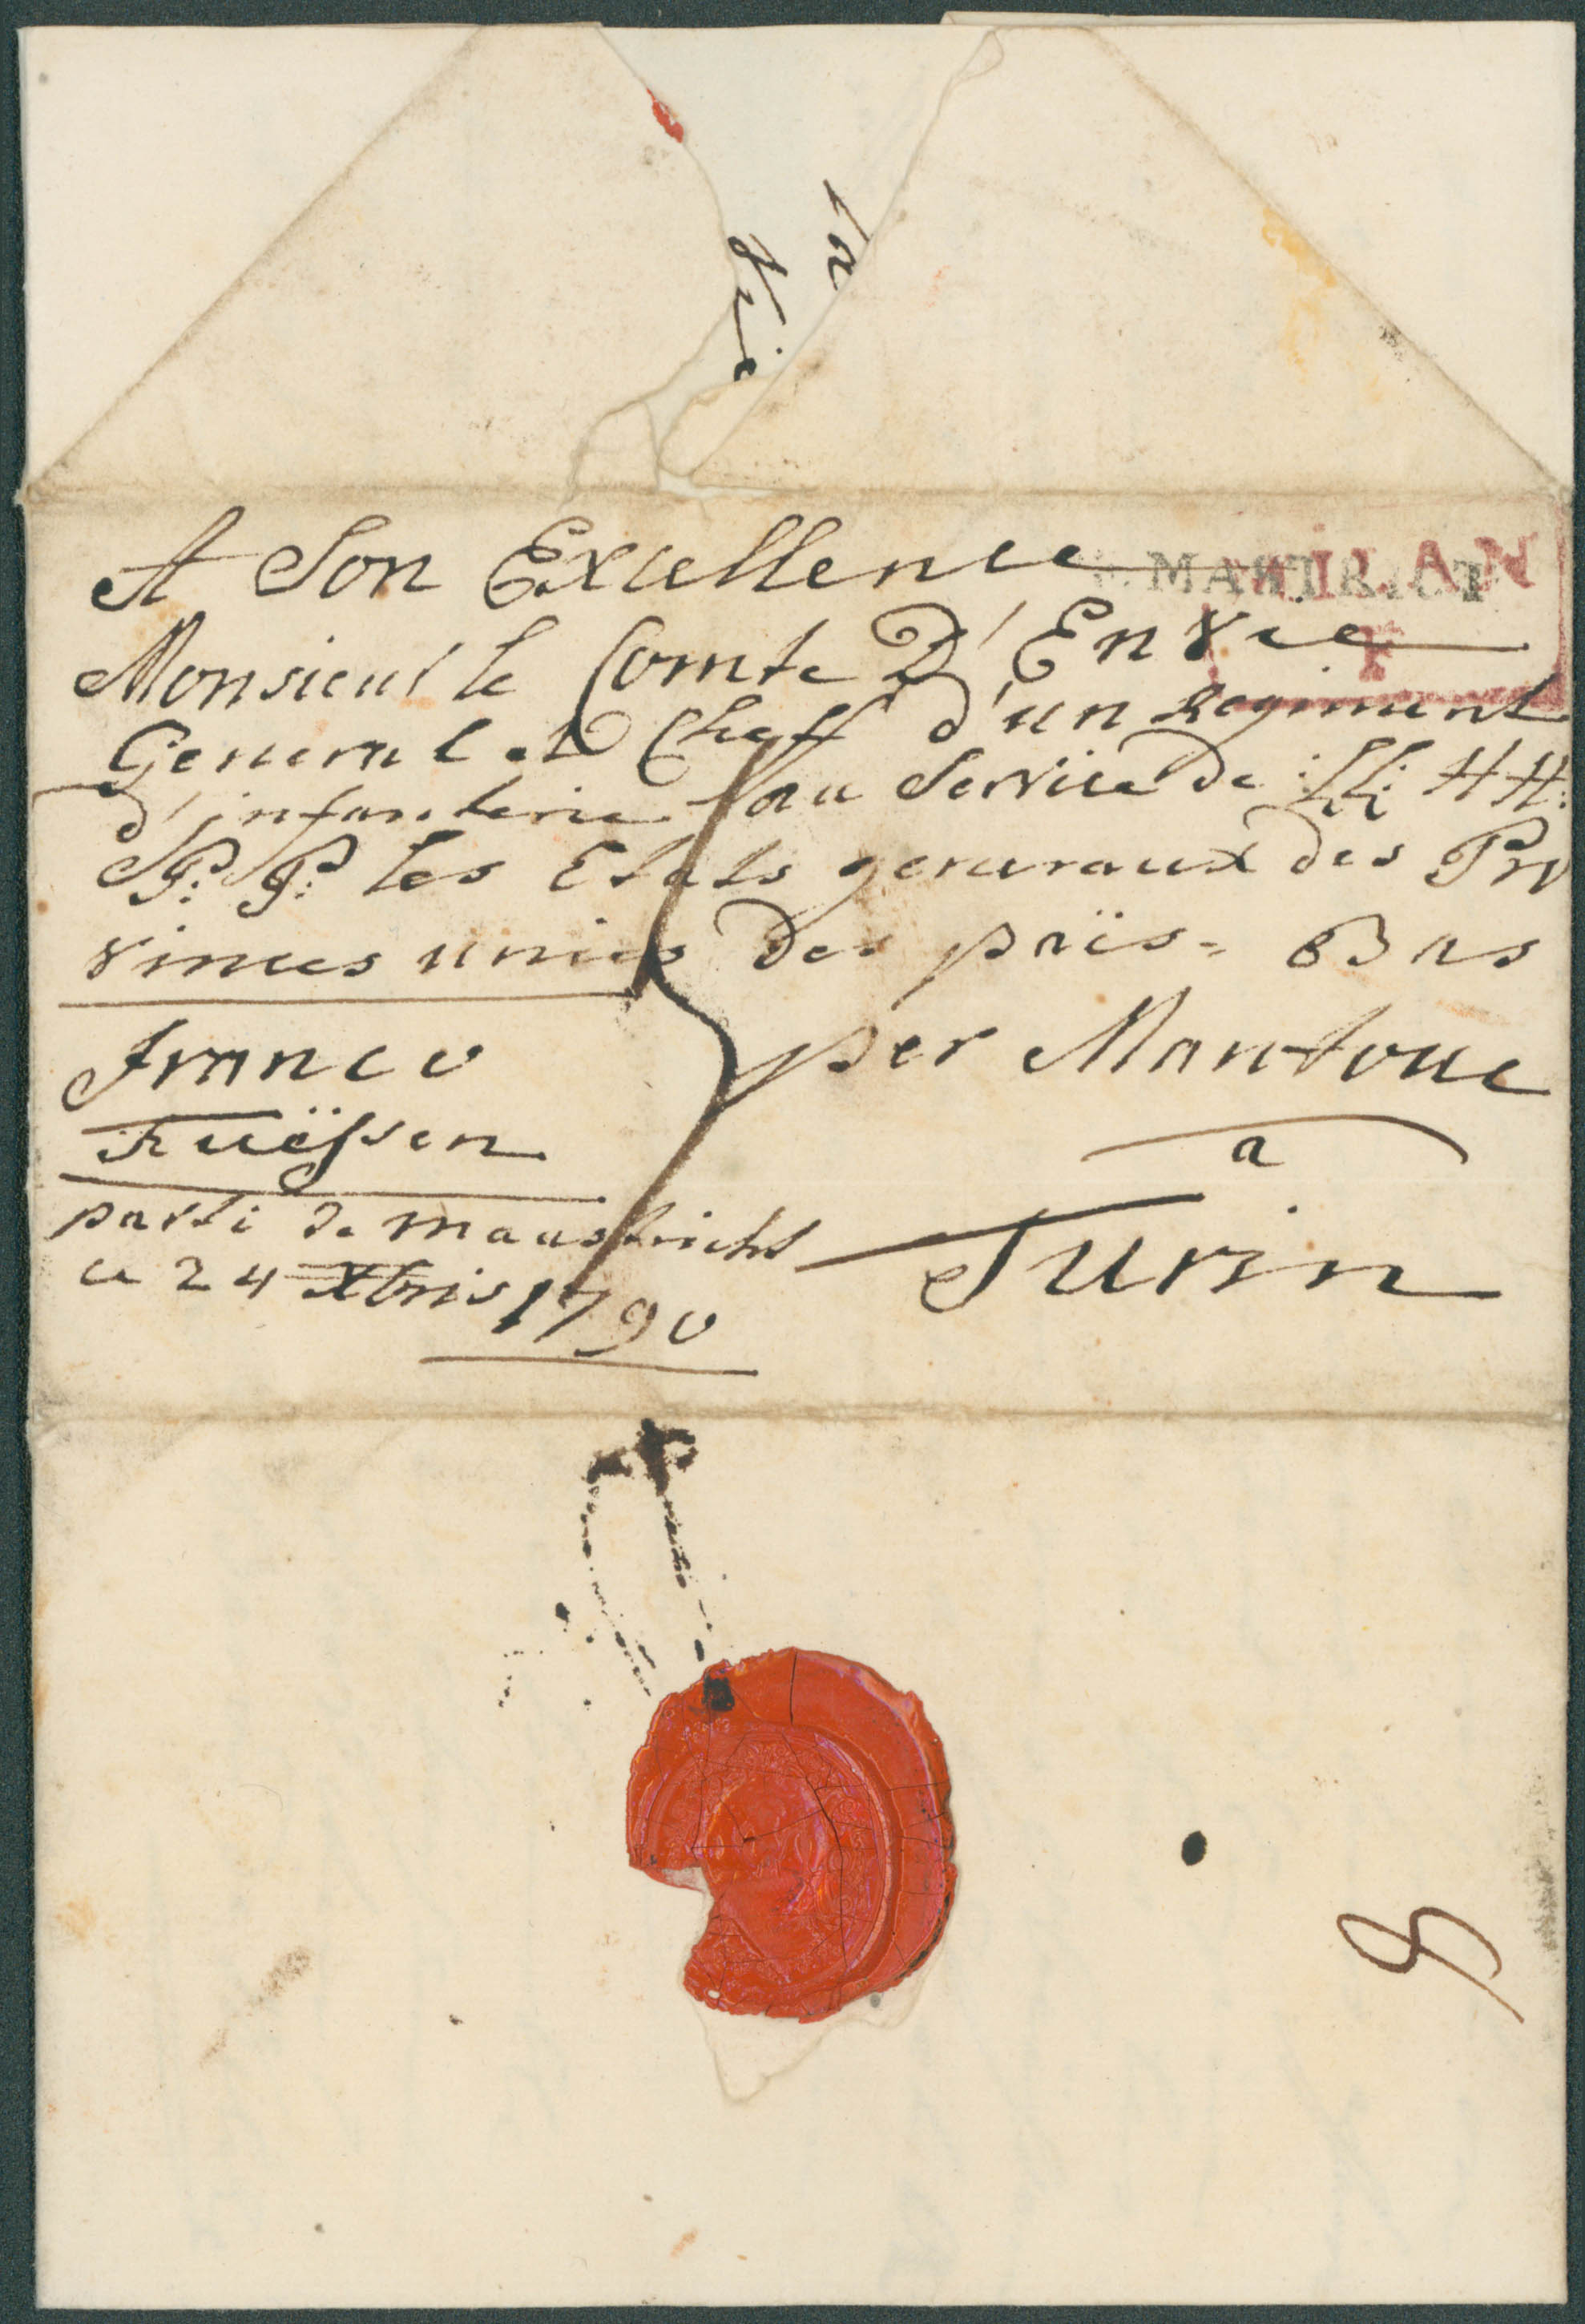 A Son Excellence
MASTRICT
MILAN
Monsieur le Comte D'Envie
General et Cheff d'un Regiment
d'infanterie au Service de LL: HH:
P: P: les Etats generaux des Pro
vinces unies des païs=Bas
Franco
per Mantoue
Fuëssen
a
parti de maastricht
Turin
ce 24 Xbris 1790
8